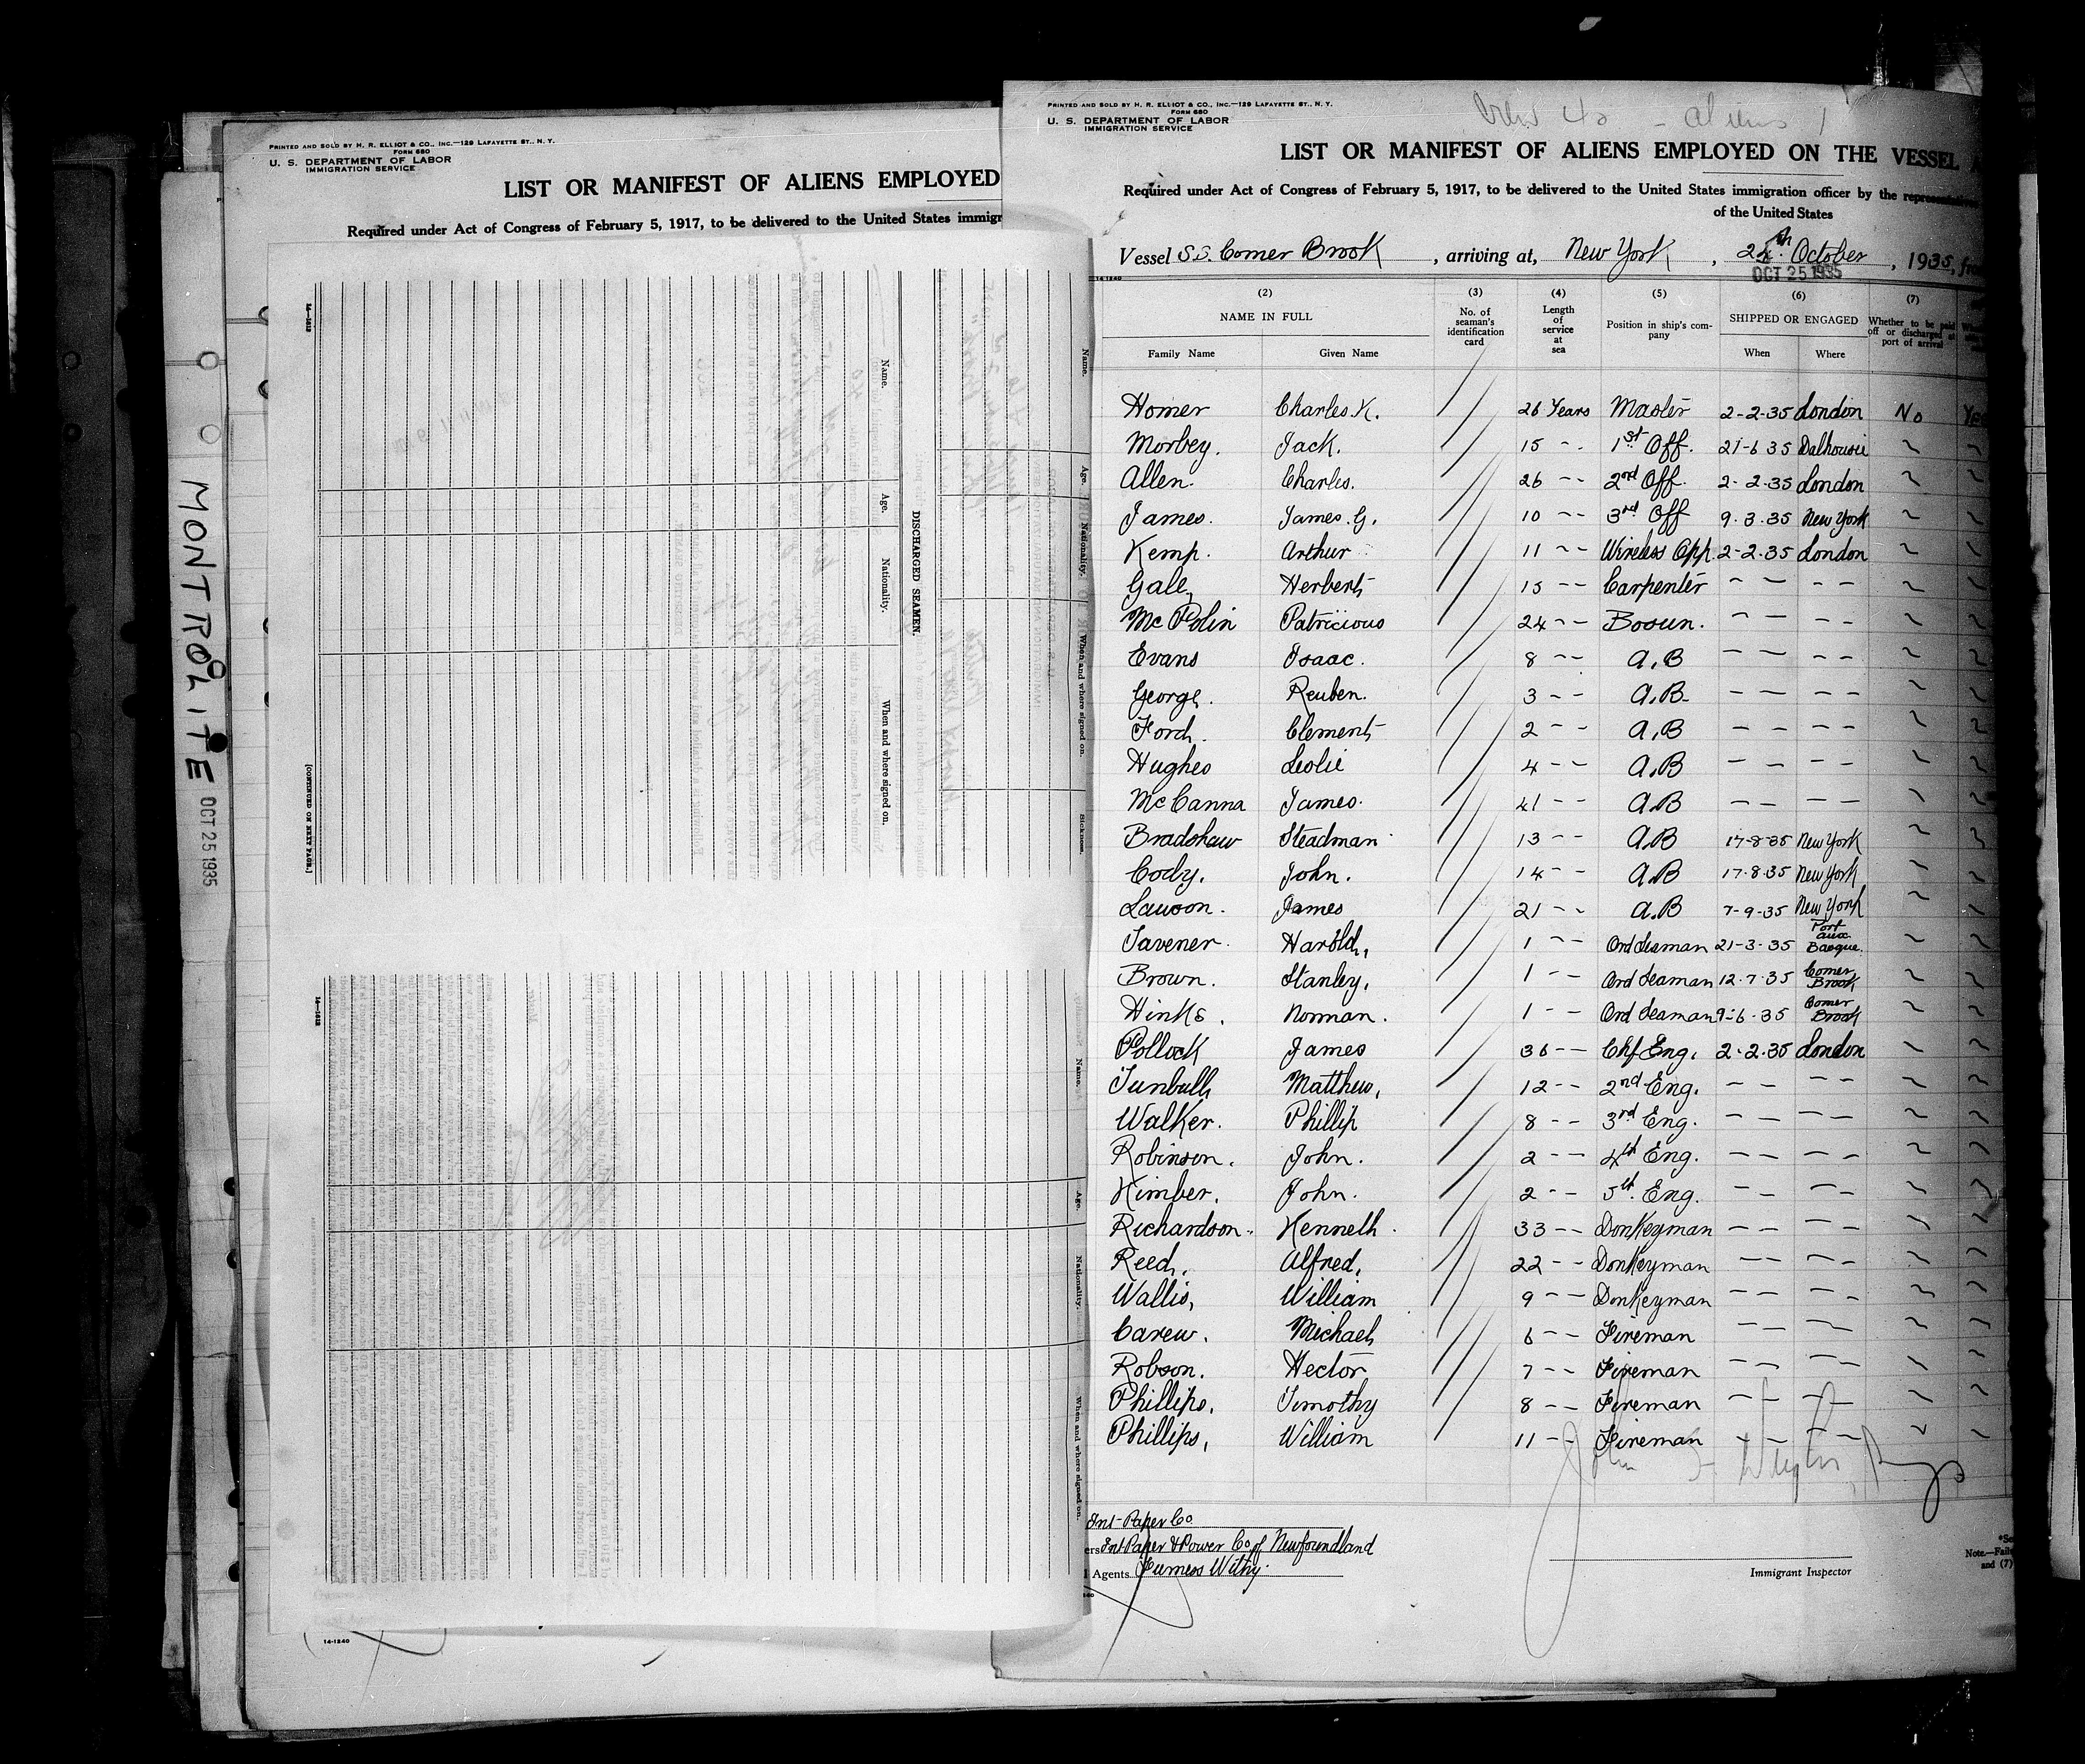 MONTROLITE OCT 25 1935
PRINTED AND SOLD BY H. R. ELLIOT & CO., INC.—129 LAFAYETTE ST., N. Y.
FORM 680
U. S. DEPARTMENT OF LABOR
IMMIGRATION SERVICE
LIST OR MANIFEST OF ALIENS EMPLOYED
Required under Act of Congress of February 5, 1917, to be delivered to the United States immigr
Name. Age. Nationality. When and where signed on.
DISCHARGED SEAMEN.
Name. Age. Nationality. When and where signed on. Sickness.
[CONTINUED ON NEXT PAGE.]
Name. Age. Nationality. When and where signed on.
14-1240
PRINTED AND SOLD BY H. R. ELLIOT & CO., INC.—129 LAFAYETTE ST., N. Y.
FORM 680
U. S. DEPARTMENT OF LABOR
IMMIGRATION SERVICE
Crew 40 - aliens 1
LIST OR MANIFEST OF ALIENS EMPLOYED ON THE VESSEL A
Required under Act of Congress of February 5, 1917, to be delivered to the United States immigration officer by the representative
of the United States
Vessel S.S. Corner Brook, arriving at, New York, 24th October, 1935, from
OCT 25 1935
14-1240
(2) (3) (4) (5) (6) (7)
NAME IN FULL No. of seaman's identification card Length of service at sea Position in ship's company SHIPPED OR ENGAGED Whether to be paid off or discharged at port of arrival
Family Name Given Name When Where
Homer Charles K. 26 Years Master 2-2-35 London No Yes
Morbey. Jack. 15 - - 1st Off. 21-6 35 Dalhousie
Allen. Charles. 26 - - 2nd Off. 2-2-35 London
James. James. G. 10 - - 3rd Off 9.3.35 New York
Kemp. Arthur 11 - - Wireless Opp. 2-2-35 London
Gale, Herbert 15 - - Carpenter - - - -
McPolin Patricious 24 - - Bosun. - - - -
Evans Isaac. 8 - - A.B - - - -
George. Reuben. 3 - - A.B. - - - -
Ford. Clement 2 - - A.B - - - -
Hughes Leslie 4 - - A.B - - - -
McCanna James. 41 - - A.B - - - -
Bradshaw Steadman 13 - - A.B 17-8-35 New York
Cody. John. 14 - - A.B 17.8.35 New York
Lawson. James 21 - - A.B 7-9-35 New York
Tavener. Harold, 1 - - Ord Seaman 21-3-35 Port aux Basque.
Brown. Stanley, 1 - - Ord Seaman 12.7.35 Corner Brook
Hinks. Norman. 1 - - Ord Seaman 9-6-35 Corner Brook
Pollock James 36 - - Chf Eng. 2.2.35 London
Tunbull, Matthew, 12 - - 2nd Eng. - - - -
Walker. Phillip 8 - - 3rd Eng. - - - -
Robinson. John. 2 - - 4th Eng. - - - -
Kimber. John. 2 - - 5th. Eng. - - - -
Richardson. Kenneth. 33 - - Donkeyman - - - -
Reed. Alfred. 22 - - Donkeyman - - - -
Wallis, William 9 - - Donkeyman - - - -
Carew. Michael 6 - - Fireman - - - -
Robson. Hector 7 - - Fireman - - - -
Phillips, Timothy 8 - - Fireman - - - -
Phillips, William 11 - - Fireman - - - -
Int-Paper Co
ers Int Paper & Power Co of Newfoundland
l Agents Furness Withy.
Immigrant Inspector
*Se
Note.—Failu
and (7)